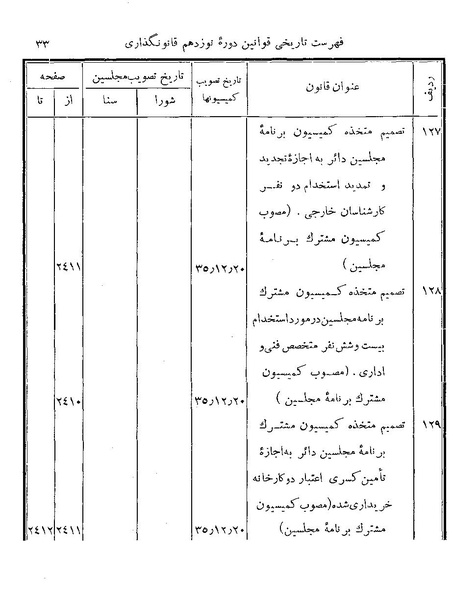 فهرست تاریخی قوانین دورهٔ نوزدهم قانونگذاری ۳۳
ردیف عنوان قانون تاریخ تصویب کمیسیونها تاریخ تصویب مجلسین صفحه
شورا سنا از تا
۱۲۷ تصمیم متخذه کمیسیون برنامهٔ
مجلسین دائر به اجازهٔ تجدید
و تمدید استخدام دو نفر
کارشناسان خارجی . (مصوب
کمیسیون مشترک برنامهٔ
مجلسین) ۳۵٫۱۲٫۲۰ ۲٤۱۱
۱۲۸ تصمیم متخذه کمیسیون مشترک
برنامه مجلسین در مورد استخدام
بیست و شش نفر متخصص فنی و
اداری . (مصوب کمیسیون
مشترک برنامهٔ مجلسین ) ۳۵٫۱۲٫۲۰ ۲٤۱۰
۱۲۹ تصمیم متخذه کمیسیون مشترک
برنامهٔ مجلسین دائر به اجازهٔ
تأمین کسری اعتبار دو کارخانه
خریداری شده (مصوب کمیسیون
مشترک برنامهٔ مجلسین) ۳۵٫۱۲٫۲۰ ۲٤۱۱ ۲٤۱۲